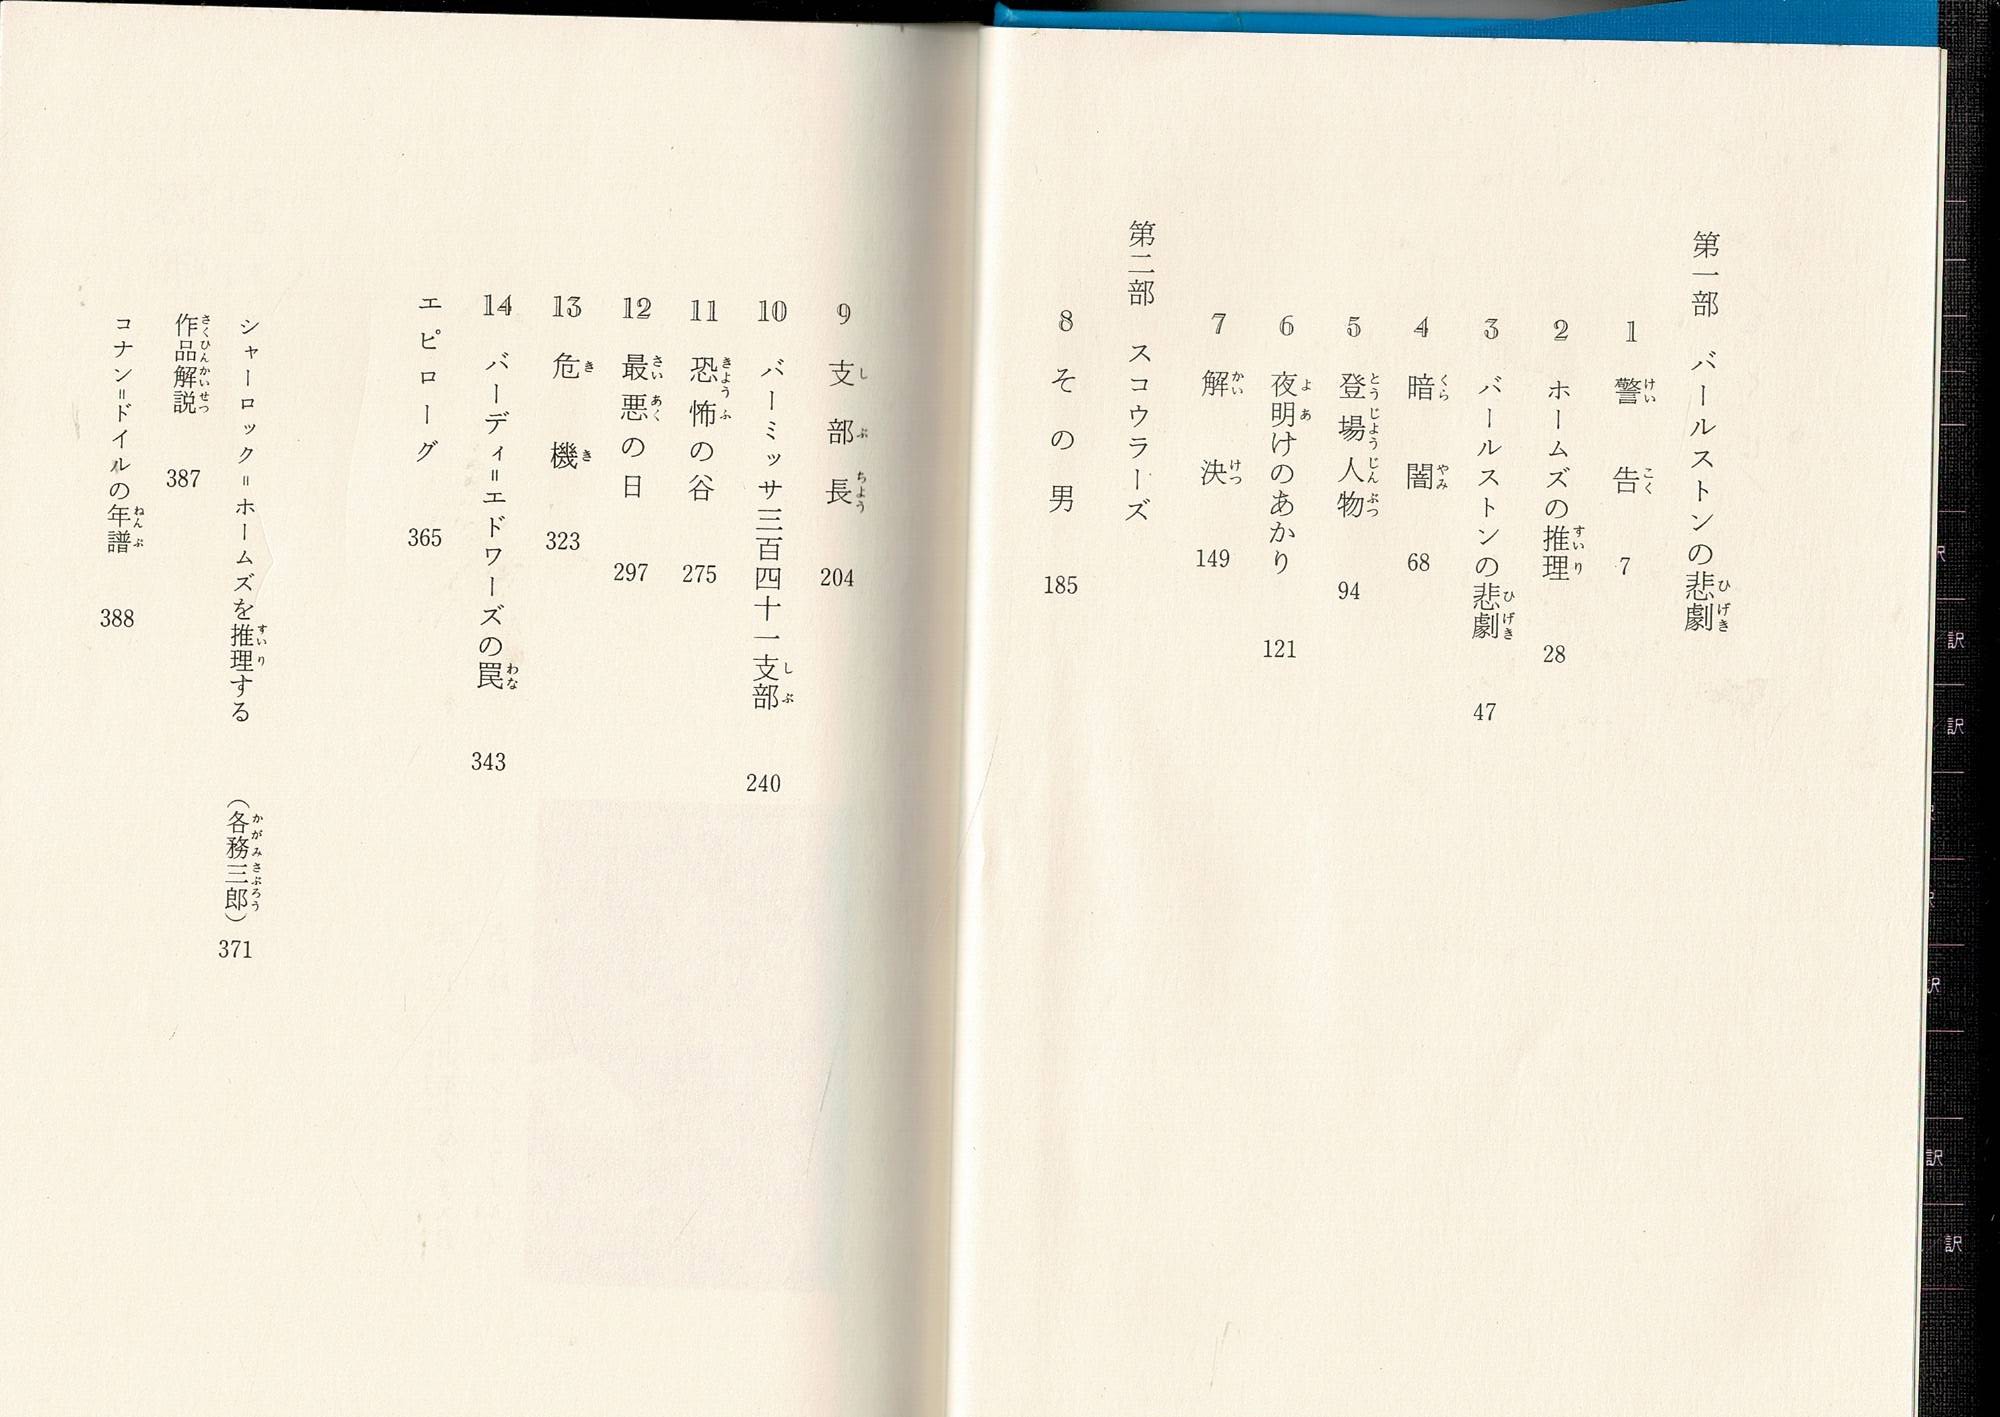 第一部 バールストンの悲劇
1 警告 7
2 ホームズの推理 28
3 バールストンの悲劇 47
4 暗闇 68
5 登場人物 94
6 夜明けのあかり 121
7 解決 149
第二部 スコウラーズ
8 その男 185
9 支部長 204
10 バーミッサ三百四十一支部 240
11 恐怖の谷 275
12 最悪の日 297
13 危機 323
14 バーディ=エドワーズの罠 343
エピローグ 365
シャーロック=ホームズを推理する (各務三郎) 371
作品解説 387
コナン=ドイルの年譜 388
訳
訳
訳
訳
訳
訳